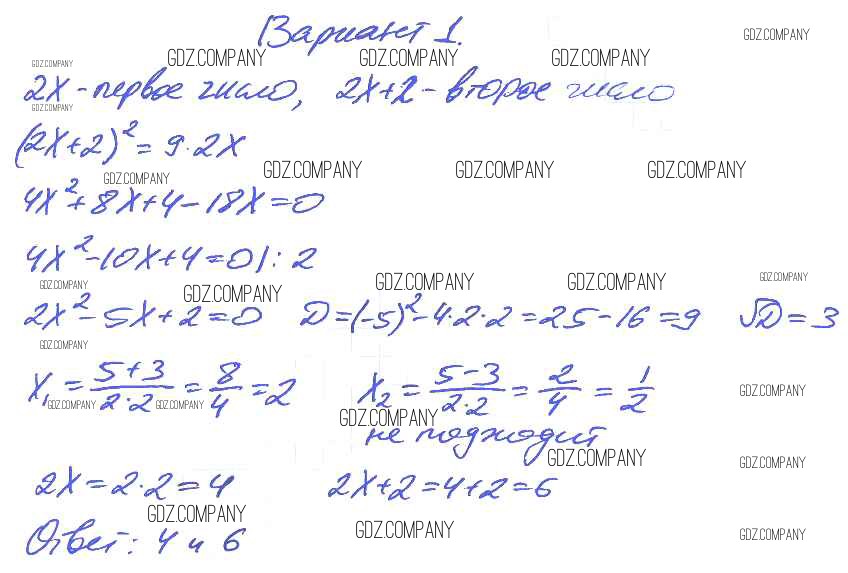 Вариант 1.
GDZ.COMPANY
GDZ.COMPANY GDZ.COMPANY GDZ.COMPANY GDZ.COMPANY
2x - первое число, 2x+2 - второе число
GDZ.COMPANY
(2x+2)² = 9·2x
GDZ.COMPANY GDZ.COMPANY GDZ.COMPANY GDZ.COMPANY
4x²+8x+4-18x=0
4x²-10x+4=0 |: 2
GDZ.COMPANY GDZ.COMPANY GDZ.COMPANY GDZ.COMPANY GDZ.COMPANY
2x²-5x+2=0 D=(-5)²-4·2·2=25-16=9 √D=3
GDZ.COMPANY
x₁ = (5+3)/(2·2) = 8/4 = 2 x₂ = (5-3)/(2·2) = 2/4 = 1/2
GDZ.COMPANY GDZ.COMPANY GDZ.COMPANY GDZ.COMPANY
не подходит
GDZ.COMPANY GDZ.COMPANY
2x=2·2=4 2x+2=4+2=6
GDZ.COMPANY GDZ.COMPANY GDZ.COMPANY
Ответ: 4 и 6